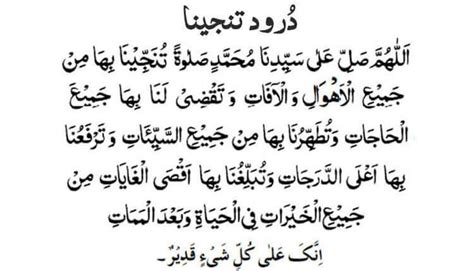 دُرود تنجینا
اَللّٰهُمَّ صَلِّ عَلٰى سَيِّدِنَا مُحَمَّدٍ صَلٰوةً تُنَجِّيْنَا بِهَا مِنْ
جَمِيْعِ الْاَهْوَالِ وَالْاٰفَاتِ وَتَقْضِىْ لَنَا بِهَا جَمِيْعَ
الْحَاجَاتِ وَتُطَهِّرُنَا بِهَا مِنْ جَمِيْعِ السَّيِّئَاتِ وَتَرْفَعُنَا
بِهَا اَعْلَى الدَّرَجَاتِ وَتُبَلِّغُنَا بِهَا اَقْصَى الْغَايَاتِ مِنْ
جَمِيْعِ الْخَيْرَاتِ فِى الْحَيَاةِ وَبَعْدَ الْمَمَاتِ
اِنَّکَ عَلٰى کُلِّ شَىْءٍ قَدِيْرٌ ۔